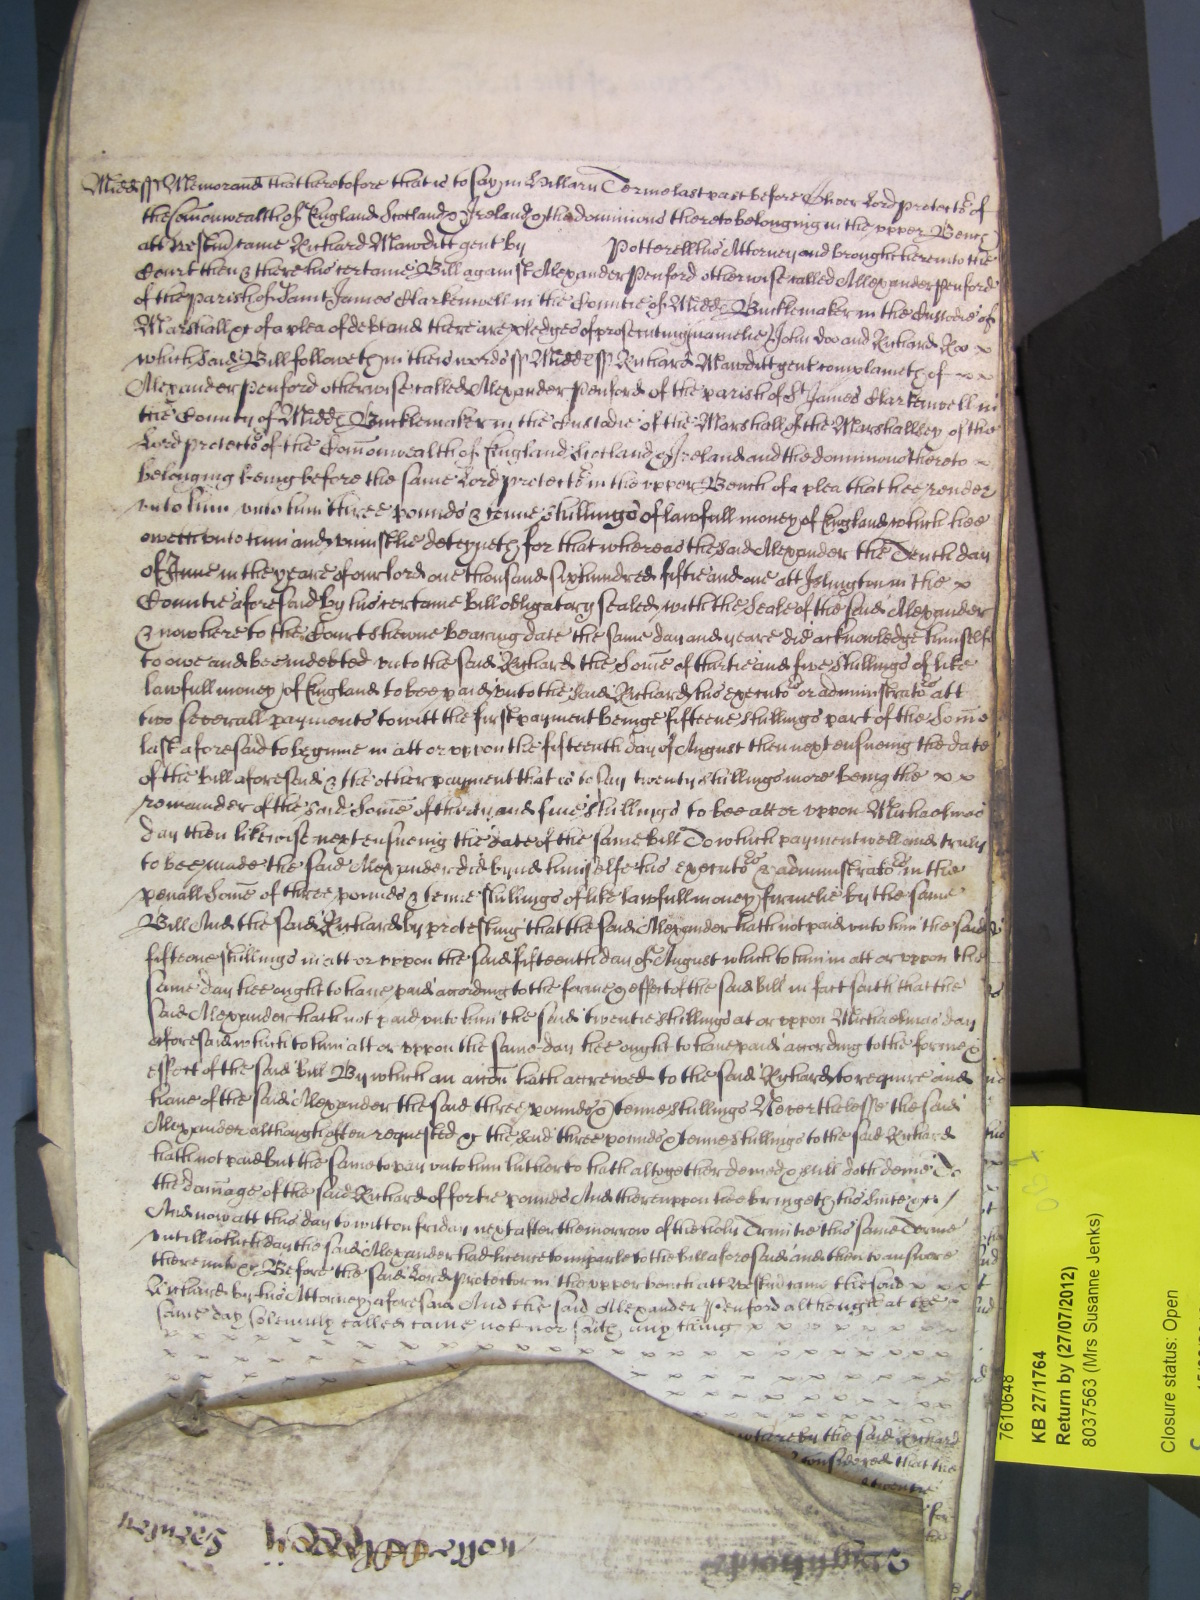 Midd ss Memorand that heretofore that is to say in Hillarii Terme last past before Oliver Lord protector of
the Comonwealth of England Scotland & Ireland & the dominions thereto belonging in the upper Bench
att Westm came Richard Mawditt gent by Potterell his Attorney and brought here into the
Court then & there his certaine Bill against Alexander Penford otherwise called Alexander Penford
of the parish of Saint James Clarkenwell in the Countie of Midd Bucklemaker in the Custodie of
Marshall &c of a plea of debt and there are pledges of prosecuting namelie John Doo and Richard Roo
which said Bill followeth in theis words ss Midd ss Richard Mawditt gent complaineth of
Alexander Penford otherwise called Alexander Penford of the parish of St James Clarkenwell in
the County of Midd Bucklemaker in the Custodie of the Marshall of the Marshallsey of the
Lord protector of the Comonwealth of England Scotland & Ireland and the dominions thereto
belonging being before the same Lord protector in the upper Bench of a plea that hee render
unto him unto him three pounds & tenne shillings of lawfull money of England which hee
oweth unto him and uniustlie deteyneth for that whereas the said Alexander the Tenth day
of June in the yeare of our lord one thousand six hundred fiftie and one att Islington in the
Countie aforesaid by his certaine bill obligatory sealed with the seale of the said Alexander
& now here to the Court shewne bearing date the same day and yeare did acknowledge himself
to owe and bee indebted unto the said Richard the Some of thirtie and five shillings of like
lawfull money of England to bee paid unto the said Richard his executors or administrators att
two severall payments to witt the first payment beinge fifteene shillings part of the Some
last aforesaid to beginne in att or uppon the fifteenth day of August then next ensueing the date
of the bill aforesaid & the other payment that is to say twenty shillings more being the
remainder of the said Some of thirty and five shillings to bee att or uppon Michaelmas
day then likewise next ensueing the date of the same bill To which payment well and truly
to bee made the said Alexander did bynd himselfe his executors & administrators in the
penall Some of three pounds & tenne shillings of like lawfull money firmelie by the same
Bill And the said Richard by protesting that the said Alexander hath not paid unto him the said
fifteene shillings in att or uppon the said fifteenth day of August which to him in att or uppon the
same day hee ought to have paid according to the forme & effect of the said bill in fact saith that the
said Alexander hath not paid unto him the said twentie shillings at or uppon Michaelmas day
aforesaid which to him att or uppon the same day hee ought to have paid according to the forme &
effect of the said bill By which an accon hath accrewed to the said Richard to require and
have of the said Alexander the said three pounds & tenne shillings Neverthelesse the said
Alexander although often requested &c the said three pounds & tenne shillings to the said Richard
hath not paid but the same to pay unto him hitherto hath altogether denied & still doth denie To
the damage of the said Richard of fortie pounds And thereuppon hee bringeth his suite &c
And now att this day to witt on friday next after the morrow of the holy Trinitie this same Terme
untill which day the said Alexander had licence to imparle to the bill aforesaid and then to answere
thereunto &c Before the said Lord Protector in the upper bench att Westm came the said
Richard by his Attorney aforesaid And the said Alexander Penford although at the
same day solemnly called came not nor saith any thing
whereby the said Richard
considered that the
7610648
KB 27/1764
Return by (27/07/2012)
8037563 (Mrs Susanne Jenks)
Closure status: Open